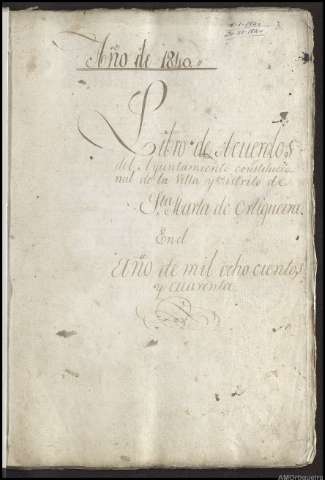 1-1-1840
30-12-1840
Año de 1840.
Libro de Acuerdos
del Ayuntamiento constitucio
nal de la Villa y distrito de
Sta. Marta de Ortigueira.
En el
Año de mil ocho cientos
y cuarenta.
AMOrtigueira